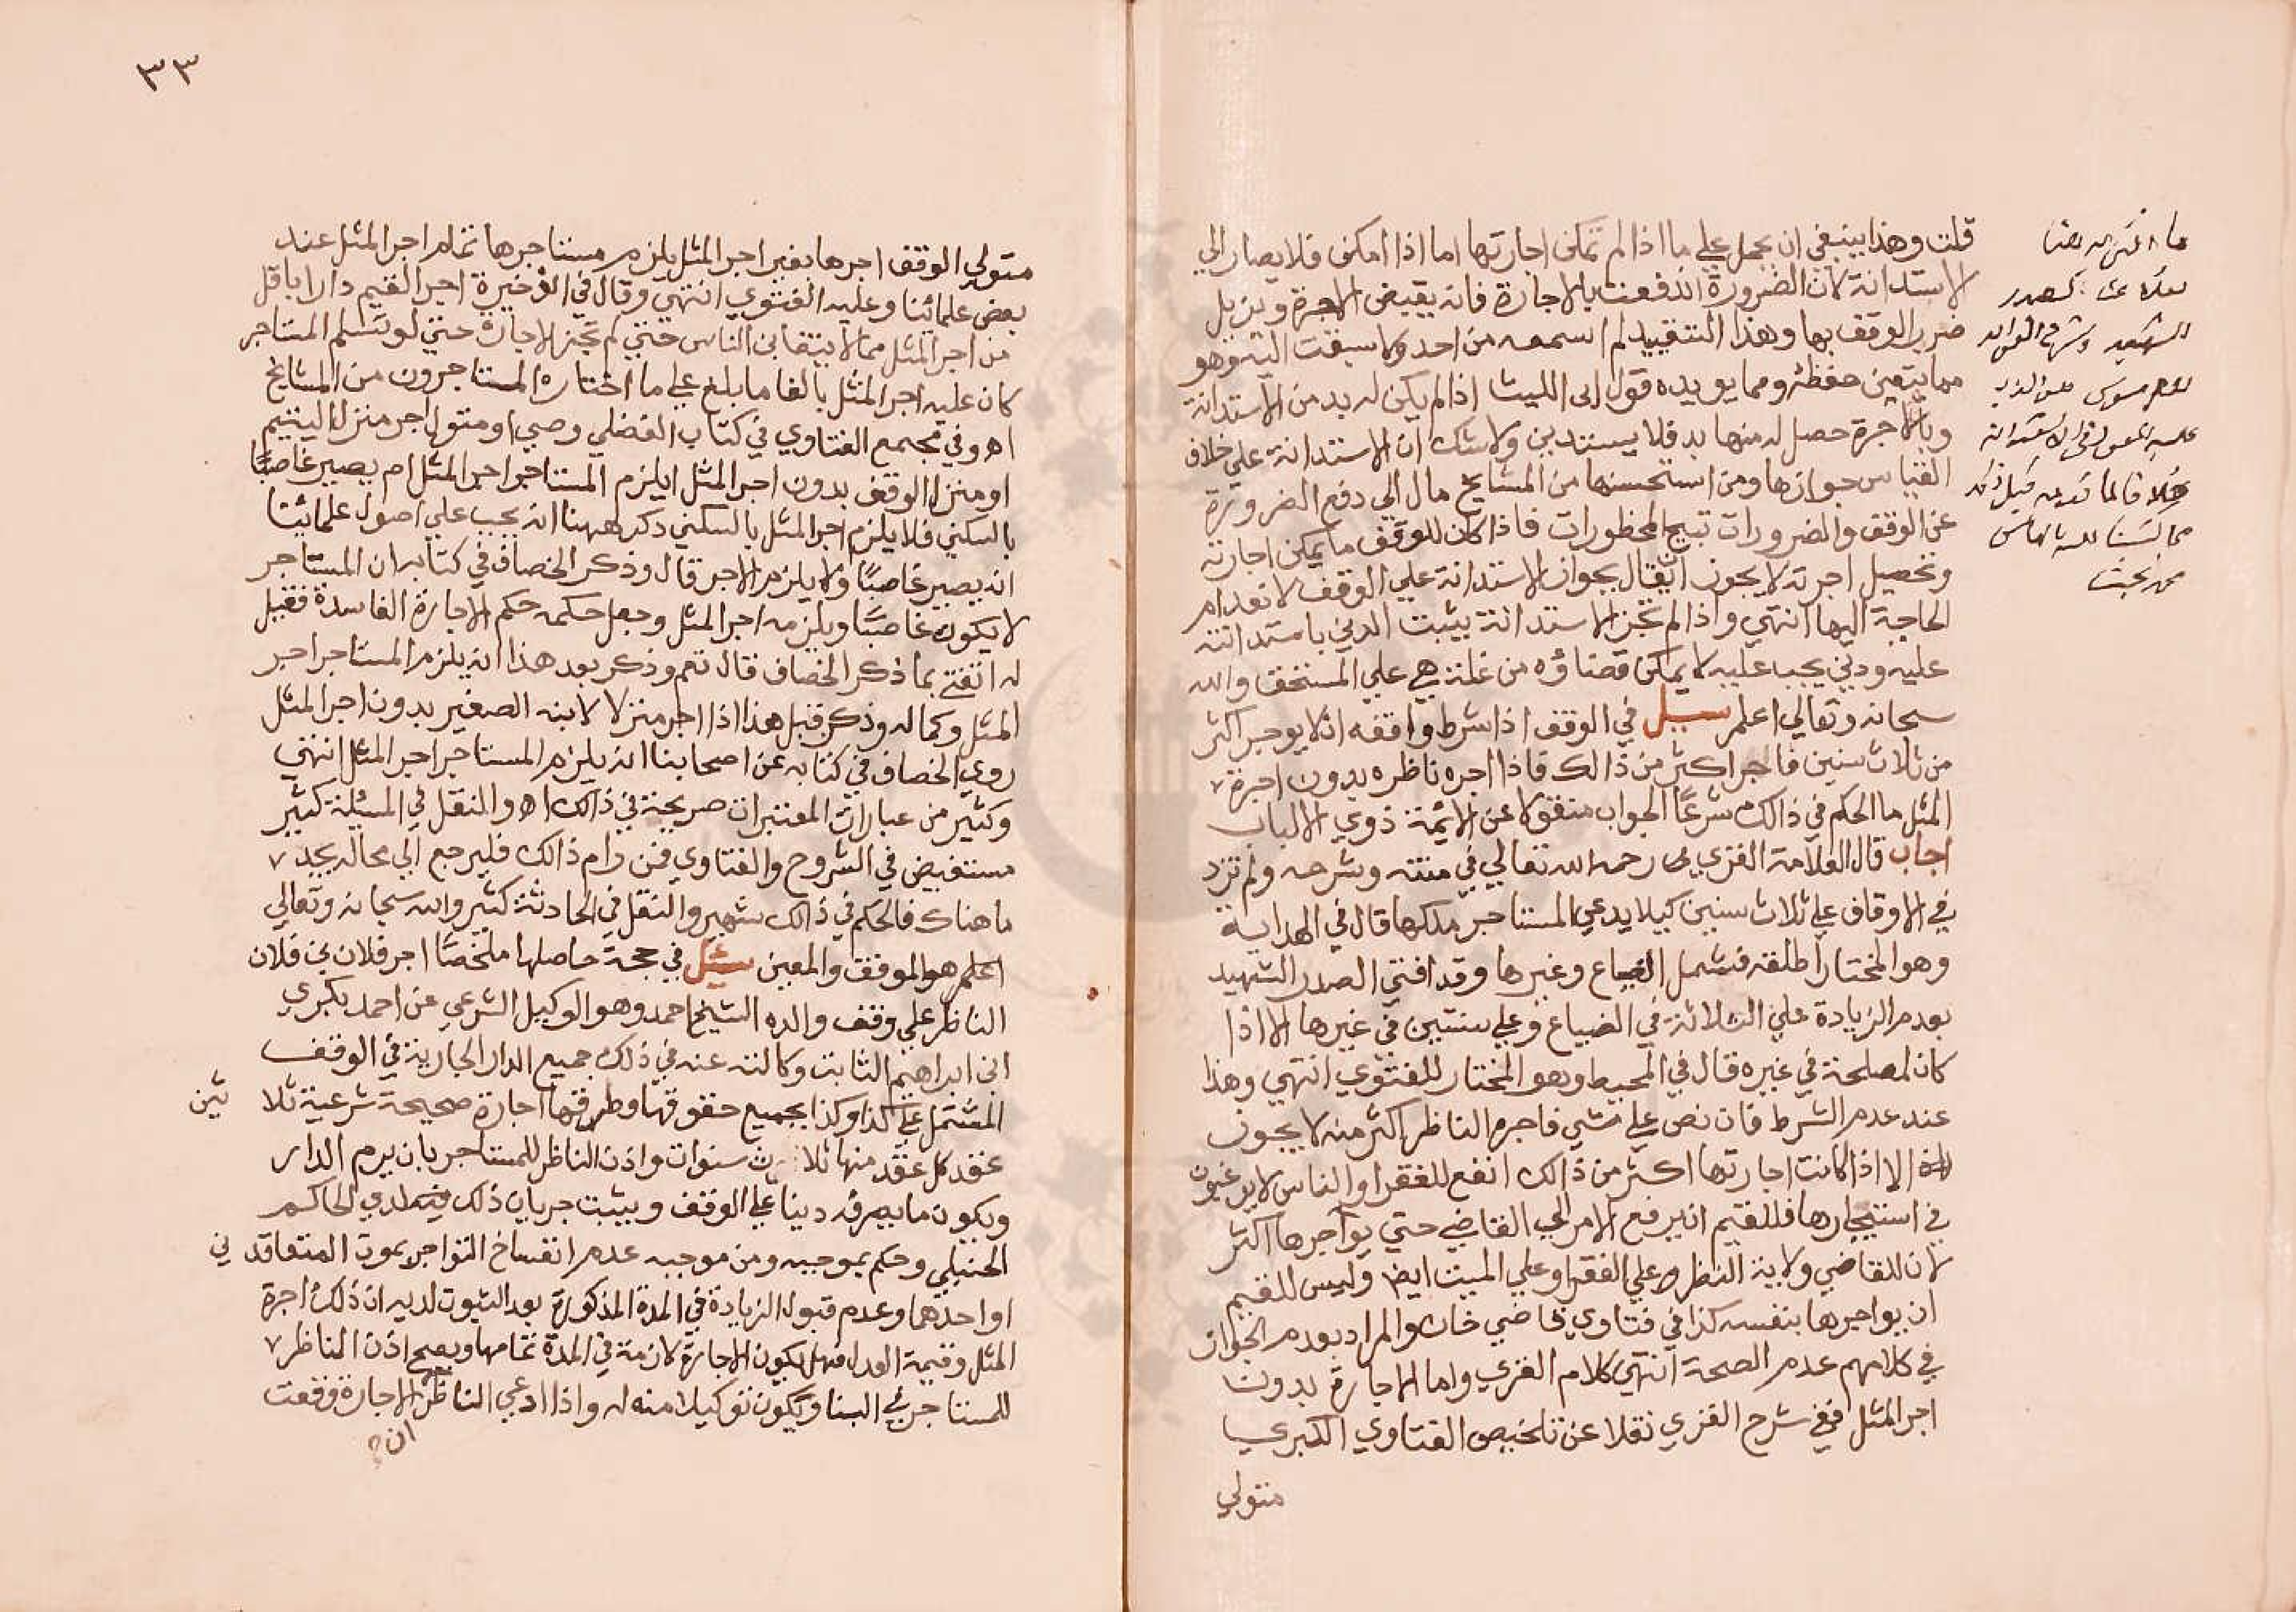 قلت وهذا ينبغي ان يحمل علي ما اذا لم تمكن اجارتها اما اذا امكن فلا يصار الي
الاستدانة لان الضرورة اندفعت بالاجارة فانه يقبض الاجرة ويزيل
ضرر الوقف بها وهذا التقييد لم اسمعه من احد ولا سبقت اليه وهو
مما يتعين حفظه ومما يويده قول ابي الليث اذا لم يكن له بد من الاستدانة
وبالاجرة حصل له منها بد فلا يستدين ولا شك ان الاستدانة علي خلاف
القياس جوازها ومن استحسنها من المشايخ مال الي دفع الضرورة
عن الوقف والضرورات تبيح المحظورات فاذا كان للوقف ما يمكن اجارته
وتحصيل اجرته لا يجوز القال بجواز الاستدانة علي الوقف لانعدام
الحاجة اليها انتهي واذا لم تجز الاستدانة يثبت الدين باستدانته
عليه ودين يجب عليه لا يمكن قضاؤه من غلة هي علي المستحق والله
سبحانه وتعالي اعلم سيل في الوقف اذا شرط واقفه ان لا يوجر اكثر
من ثلاث سنين فاجر اكثر من ذالك فاذا اجره ناظره بدون اجرة
المثل ما الحكم في ذالك شرعا الجواب منقولا عن الائمة ذوي الالباب
اجاب قال العلامة الغزي رحمه الله تعالي في متنه وشرحه ولم تزد
في الاوقاف علي ثلاث سنين كيلا يدعي المستاجر ملكها قال في الهداية
وهو المختار اطلقه فشمل الضياع وغيرها وقد افتي الصدر الشهيد
بعدم الزيادة علي الثلاثة في الضياع وعلي سنتين في غيرها الا اذا
كان لمصلحة في غيره قال في المحيط وهو المختار للفتوي انتهي وهذا
عند عدم الشرط فان نص علي شي فاجره الناظر اكثر منه لا يجوز
الا اذا كانت اجارتها اكثر من ذالك انفع للفقرا والناس لا يرغبون
في استيجارها فللقيم ان يرفع الامر الي القاضي حتي يواجرها اكثر
لان للقاضي ولاية النظر علي الفقرا وعلي الميت ايضا وليس للقيم
ان يواجرها بنفسه كذا في فتاوي قاضي خان والمراد بعدم الجواز
في كلامهم عدم الصحة انتهي كلام الغزي واما الاجارة بدون
اجر المثل ففي شرح الغزي نقلا عن تلخيص الفتاوي الكبري
متولي
الشهيد
٣٣
متولي الوقف اجرها بغير اجر المثل يلزم مستاجرها تمام اجر المثل عند
بعض علمائنا وعليه الفتوي انتهي وقال في الذخيرة اجر القيم دارا باقل
من اجر المثل مما لا يتغابن الناس حتي لم تجز الاجارة حتي لو تسلم المستاجر
كان عليه اجر المثل بالغا ما بلغ علي ما اختاره المستاجرون من المشايخ
اه وفي مجمع الفتاوي في كتاب الفضلي وصي او متولي اجر منزل اليتيم
او منزل الوقف بدون اجر المثل ايلزم المستاجر اجر المثل ام يصير غاصبا
بالسكني فلا يلزم اجر المثل بالسكني ذكر ههنا انه يجب علي اصول علمائنا
انه يصير غاصبا ولا يلزم الاجر قال وذكر الخصاف في كتابه ان المستاجر
لا يكون غاصبا ويلزمه اجر المثل وجعل حكمه حكم الاجارة الفاسدة فقيل
له اتفتي بما ذكر الخصاف قال نعم وذكر بعد هذا انه يلزم المستاجر اجر
المثل وكماله وذكر قبل هذا اذا اجر منزلا لابنه الصغير بدون اجر المثل
روي الخصاف في كتابه عن اصحابنا انه يلزم المستاجر اجر المثل انتهي
وكثير من عبارات المعتبرات صريحة في ذالك اه والنقل في المسئلة كثير
مستفيض في الشروح والفتاوي فمن رام ذالك فليرجع الي محاله يجد
ما هناك فالحكم في ذالك شهير والنقل في الحادثة كثير والله سبحانه وتعالي
اعلم هو الموفق والمعين سئل في حجة حاصلها ملخصا اجر فلان بن فلان
الناظر علي وقف والده الشيخ احمد وهو الوكيل الشرعي عن احمد بكري
ابن ابراهيم الثابت وكالته عنه في ذلك جميع الدار الجارية في الوقف
المشتمل علي كذا وكذا بجميع حقوقها وطرقها اجارة صحيحة شرعية ثلاثين
عقد كل عقد منها ثلاث سنوات واذن الناظر للمستاجر بان يرم الدار
ويكون ما يصرفه دينا علي الوقف ويثبت جريان ذلك لدي الحاكم
الحنبلي وحكم بموجبه ومن موجبه عدم انفساخ التواجر بموت المتعاقدين
او احدهما وعدم قبول الزيادة في المدة المذكورة بعد الثبوت لديه ان ذلك اجرة
المثل وقيمة العدل فهل يكون الاجارة لازمة في المدة تمامها ويصح اذن الناظر
للمستاجر في البنا ويكون توكيلا منه له واذا ادعي الناظر الاجارة وقعت
ان